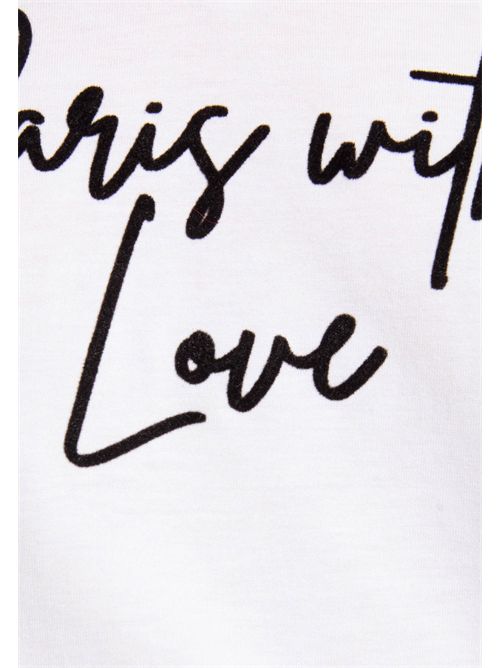 Paris with
Love